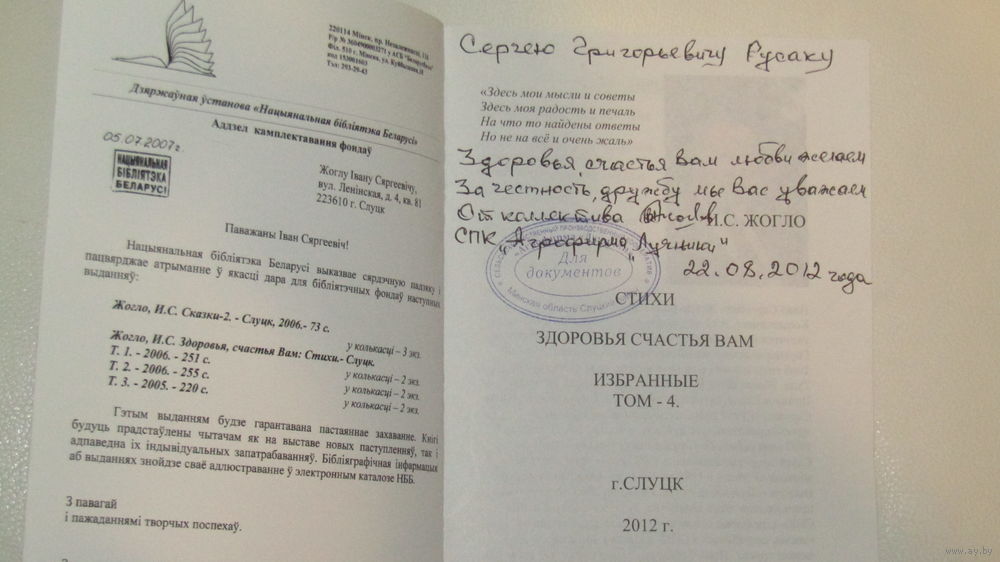 220114 Мінск, пр. Незалежнасці, 116
Р/р № 3604900003271 у АСБ "Беларусбанк"
Філ. 510 г. Мінска, ул. Куйбышева, 18
код 153001603
Тэл: 293-29-43
Дзяржаўная ўстанова «Нацыянальная бібліятэка Беларусі»
Аддзел камплектавання фондаў
05.07.2007г
НАЦЫЯНАЛЬНАЯ
БІБЛІЯТЭКА
БЕЛАРУСІ
Жоглу Івану Сяргеевічу,
вул. Ленінская, д. 4, кв. 81
223610 г. Слуцк
Паважаны Іван Сяргеевіч!
Нацыянальная бібліятэка Беларусі выказвае сардэчную падзяку і
пацвярджае атрыманне ў якасці дара для бібліятэчных фондаў наступных
выданняў:
Жогло, И.С. Сказки-2. - Слуцк, 2006.- 73 с.
у колькасці – 3 экз.
Жогло, И.С. Здоровья, счастья Вам: Стихи.- Слуцк.
Т. 1. - 2006. - 251 с.
у колькасці – 2 экз.
Т. 2. - 2006. - 255 с.
у колькасці – 2 экз.
Т. 3. - 2005. - 220 с.
у колькасці – 2 экз.
Гэтым выданням будзе гарантавана пастаяннае захаванне. Кнігі
будуць прадстаўлены чытачам як на выставе новых паступленняў, так і
адпаведна іх індывідуальных запатрабаванняў. Бібліяграфічная інфармацыя
аб выданнях знойдзе сваё адлюстраванне ў электронным каталозе НББ.
З павагай
і пажаданнямі творчых поспехаў.
Сергею Григорьевичу Русаку
«Здесь мои мысли и советы
Здесь моя радость и печаль
На что то найдены ответы
Но не на всё и очень жаль»
Здоровья, счастья Вам любви желаем
За честность, дружбу мы Вас уважаем
От коллектива
И.С. ЖОГЛО
СПК "Агрофирма Лучники"
22.08.2012 года
Для
документов
Минская область Слуцкий
СТИХИ
ЗДОРОВЬЯ СЧАСТЬЯ ВАМ
ИЗБРАННЫЕ
ТОМ - 4.
г.СЛУЦК
2012 г.
www.ay.by